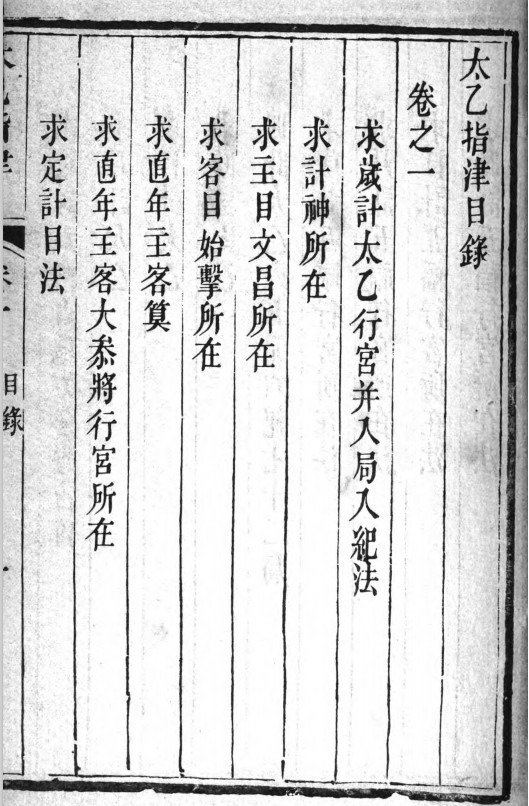 太乙指津目錄
卷之一
求歲計太乙行宮并入局入紀法
求計神所在
求主目文昌所在
求客目始擊所在
求直年主客算
求直年主客大叅將行宮所在
求定計目法
太乙指津
卷一
目錄
一